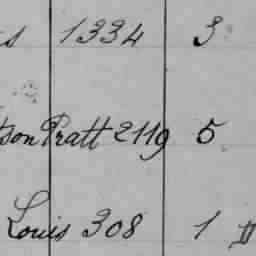 s 1334 3
tson Pratt 2119 5
Louis 308 1